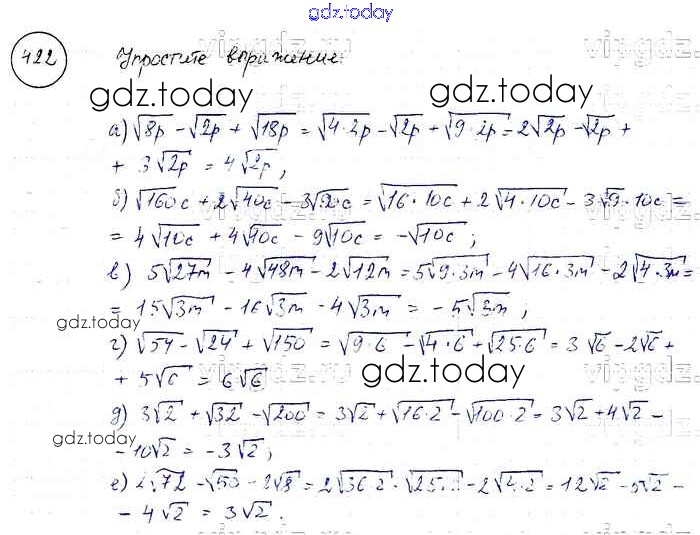 gdz.today
422 Упростите выражение:
gdz.today gdz.today
а) √8p - √2p + √18p = √4·2p - √2p + √9·2p = 2√2p - √2p +
+ 3√2p = 4√2p;
б) √160c + 2√40c - 3√90c = √16·10c + 2√4·10c - 3√9·10c =
= 4√10c + 4√10c - 9√10c = -√10c;
в) 5√27m - 4√48m - 2√12m = 5√9·3m - 4√16·3m - 2√4·3m =
= 15√3m - 16√3m - 4√3m = -5√3m;
gdz.today
г) √54 - √24 + √150 = √9·6 - √4·6 + √25·6 = 3√6 - 2√6 +
+ 5√6 = 6√6
gdz.today
д) 3√2 + √32 - √200 = 3√2 + √16·2 - √100·2 = 3√2 + 4√2 -
gdz.today
- 10√2 = -3√2;
е) 2√72 - √50 - 2√8 = 2√36·2 - √25·2 - 2√4·2 = 12√2 - 5√2 -
- 4√2 = 3√2.